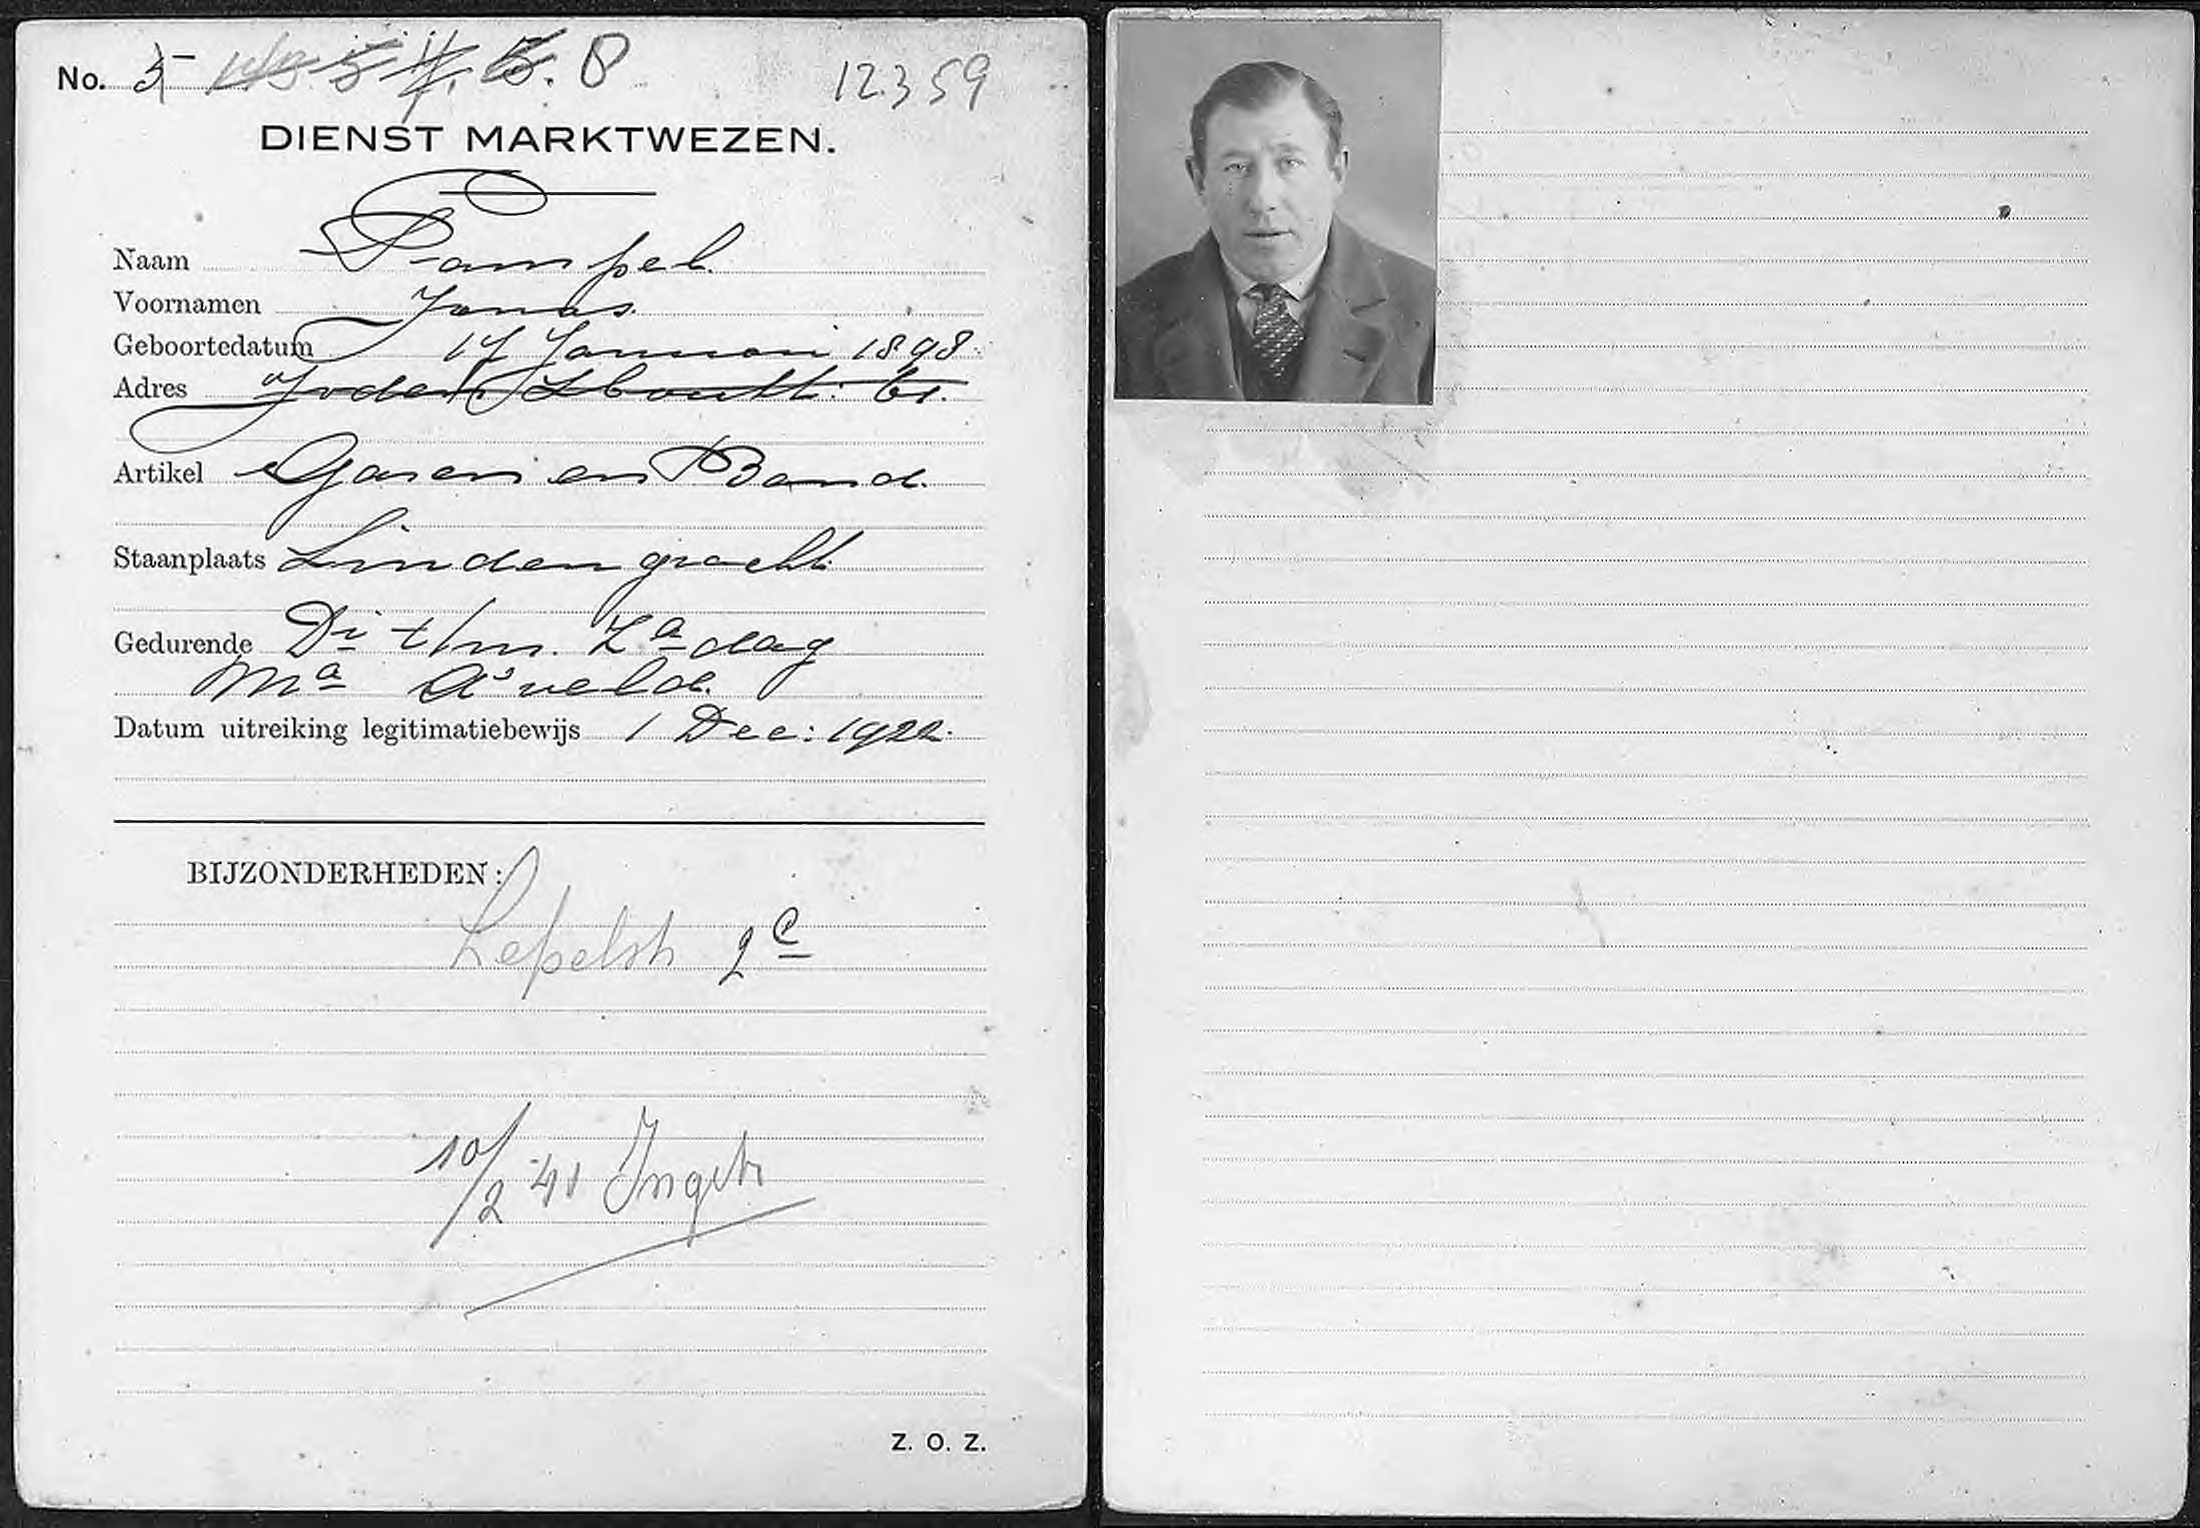 No. 5 8 12359
DIENST MARKTWEZEN.
Naam Pampel.
Voornamen Jonas.
Geboortedatum 17 Januari 1898.
Adres Joden Houtt: 61.
Artikel Garen en Band.
Staanplaats Lindengracht.
Gedurende Di t/m. Zadag
Ma A'veld.
Datum uitreiking legitimatiebewijs 1 Dec: 1922.
BIJZONDERHEDEN:
Lepelstr 2c
10/2 41 Ingetr
Z. O. Z.